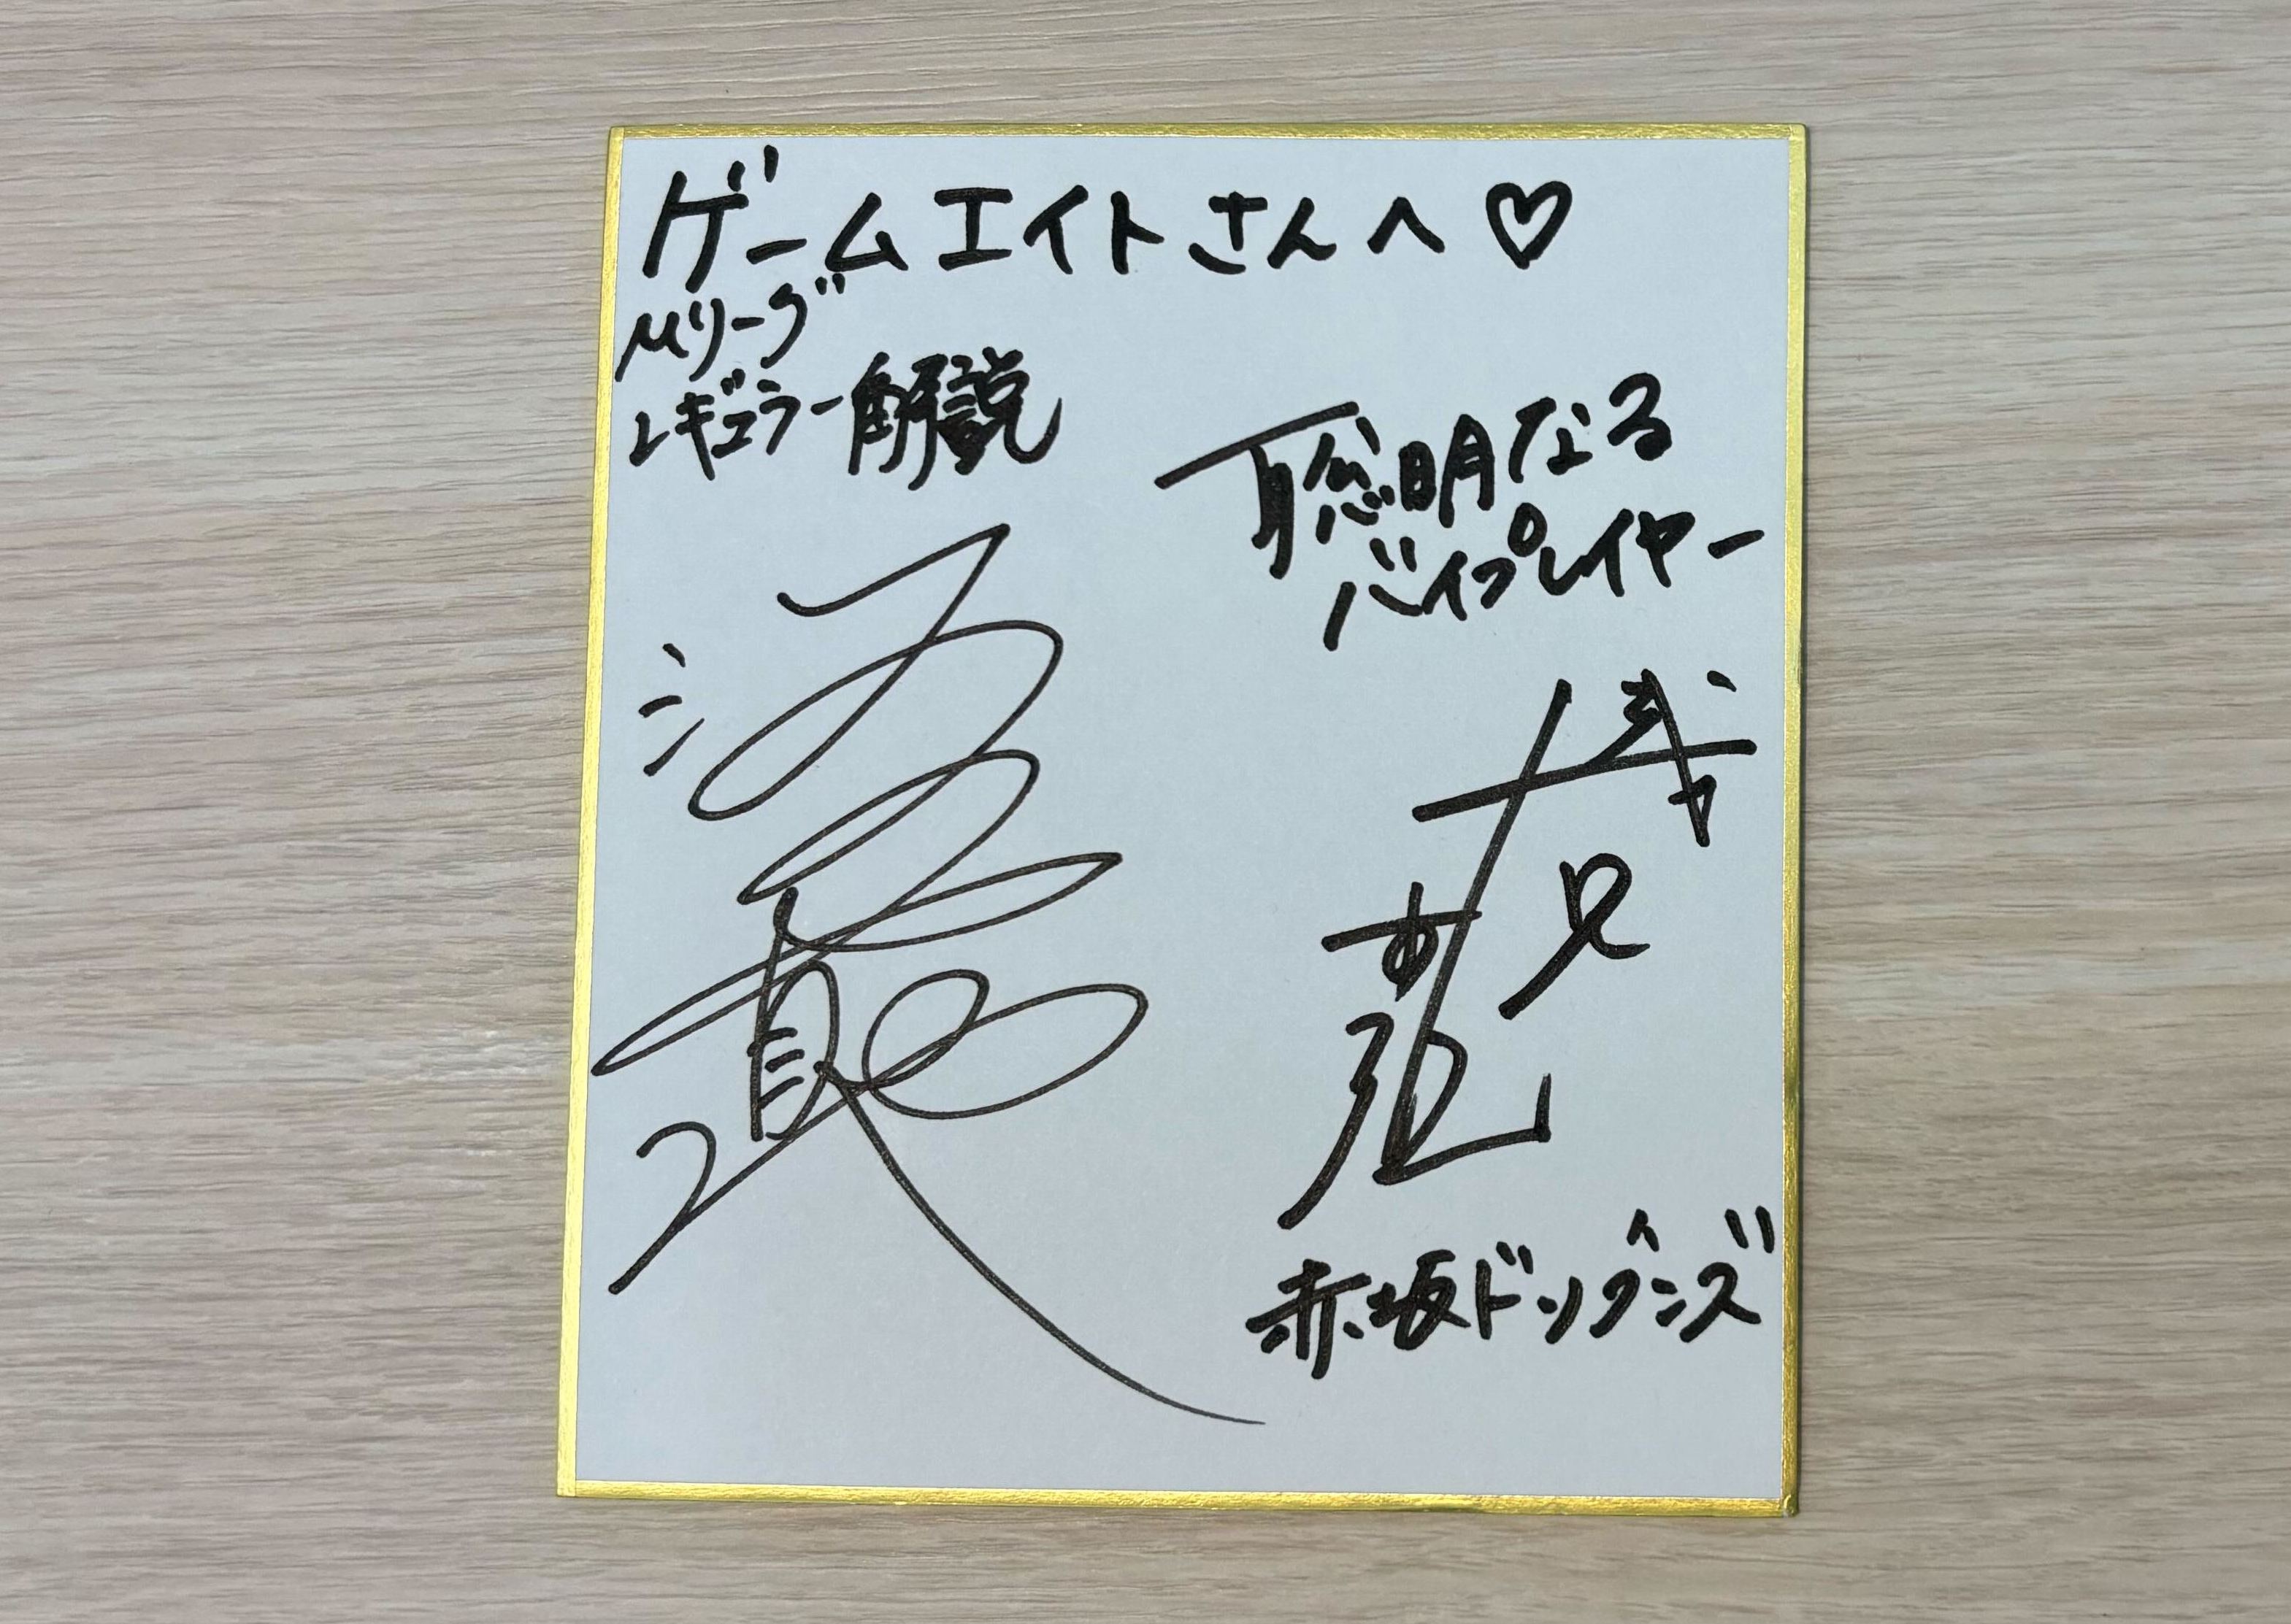 ゲームエイトさんへ♡
Mリーグ
レギュラー解説
聡明なる
バイプレイヤー
赤坂ドリブンズ